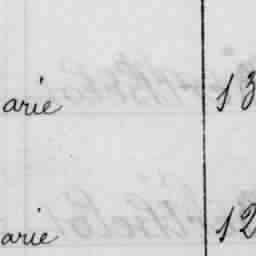 arie 13
arie 12